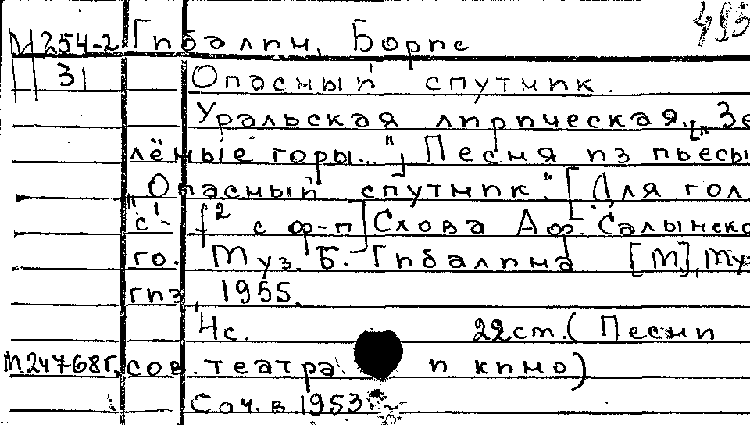 493
М254-2 Гибалин, Борис
П 31 Опасный спутник.
Уральская лирическая „Зе
лёные горы..."] Песня из пьесы
"Опасный спутник." [Для гол.
с¹- f² с ф-п] Слова Аф. Салынско
го. Муз. Б. Гибалина [М], Муз
гиз, 1955.
4с. 22 ст. (Песни
М24768г. сов. театра и кино)
Соч. в 1953